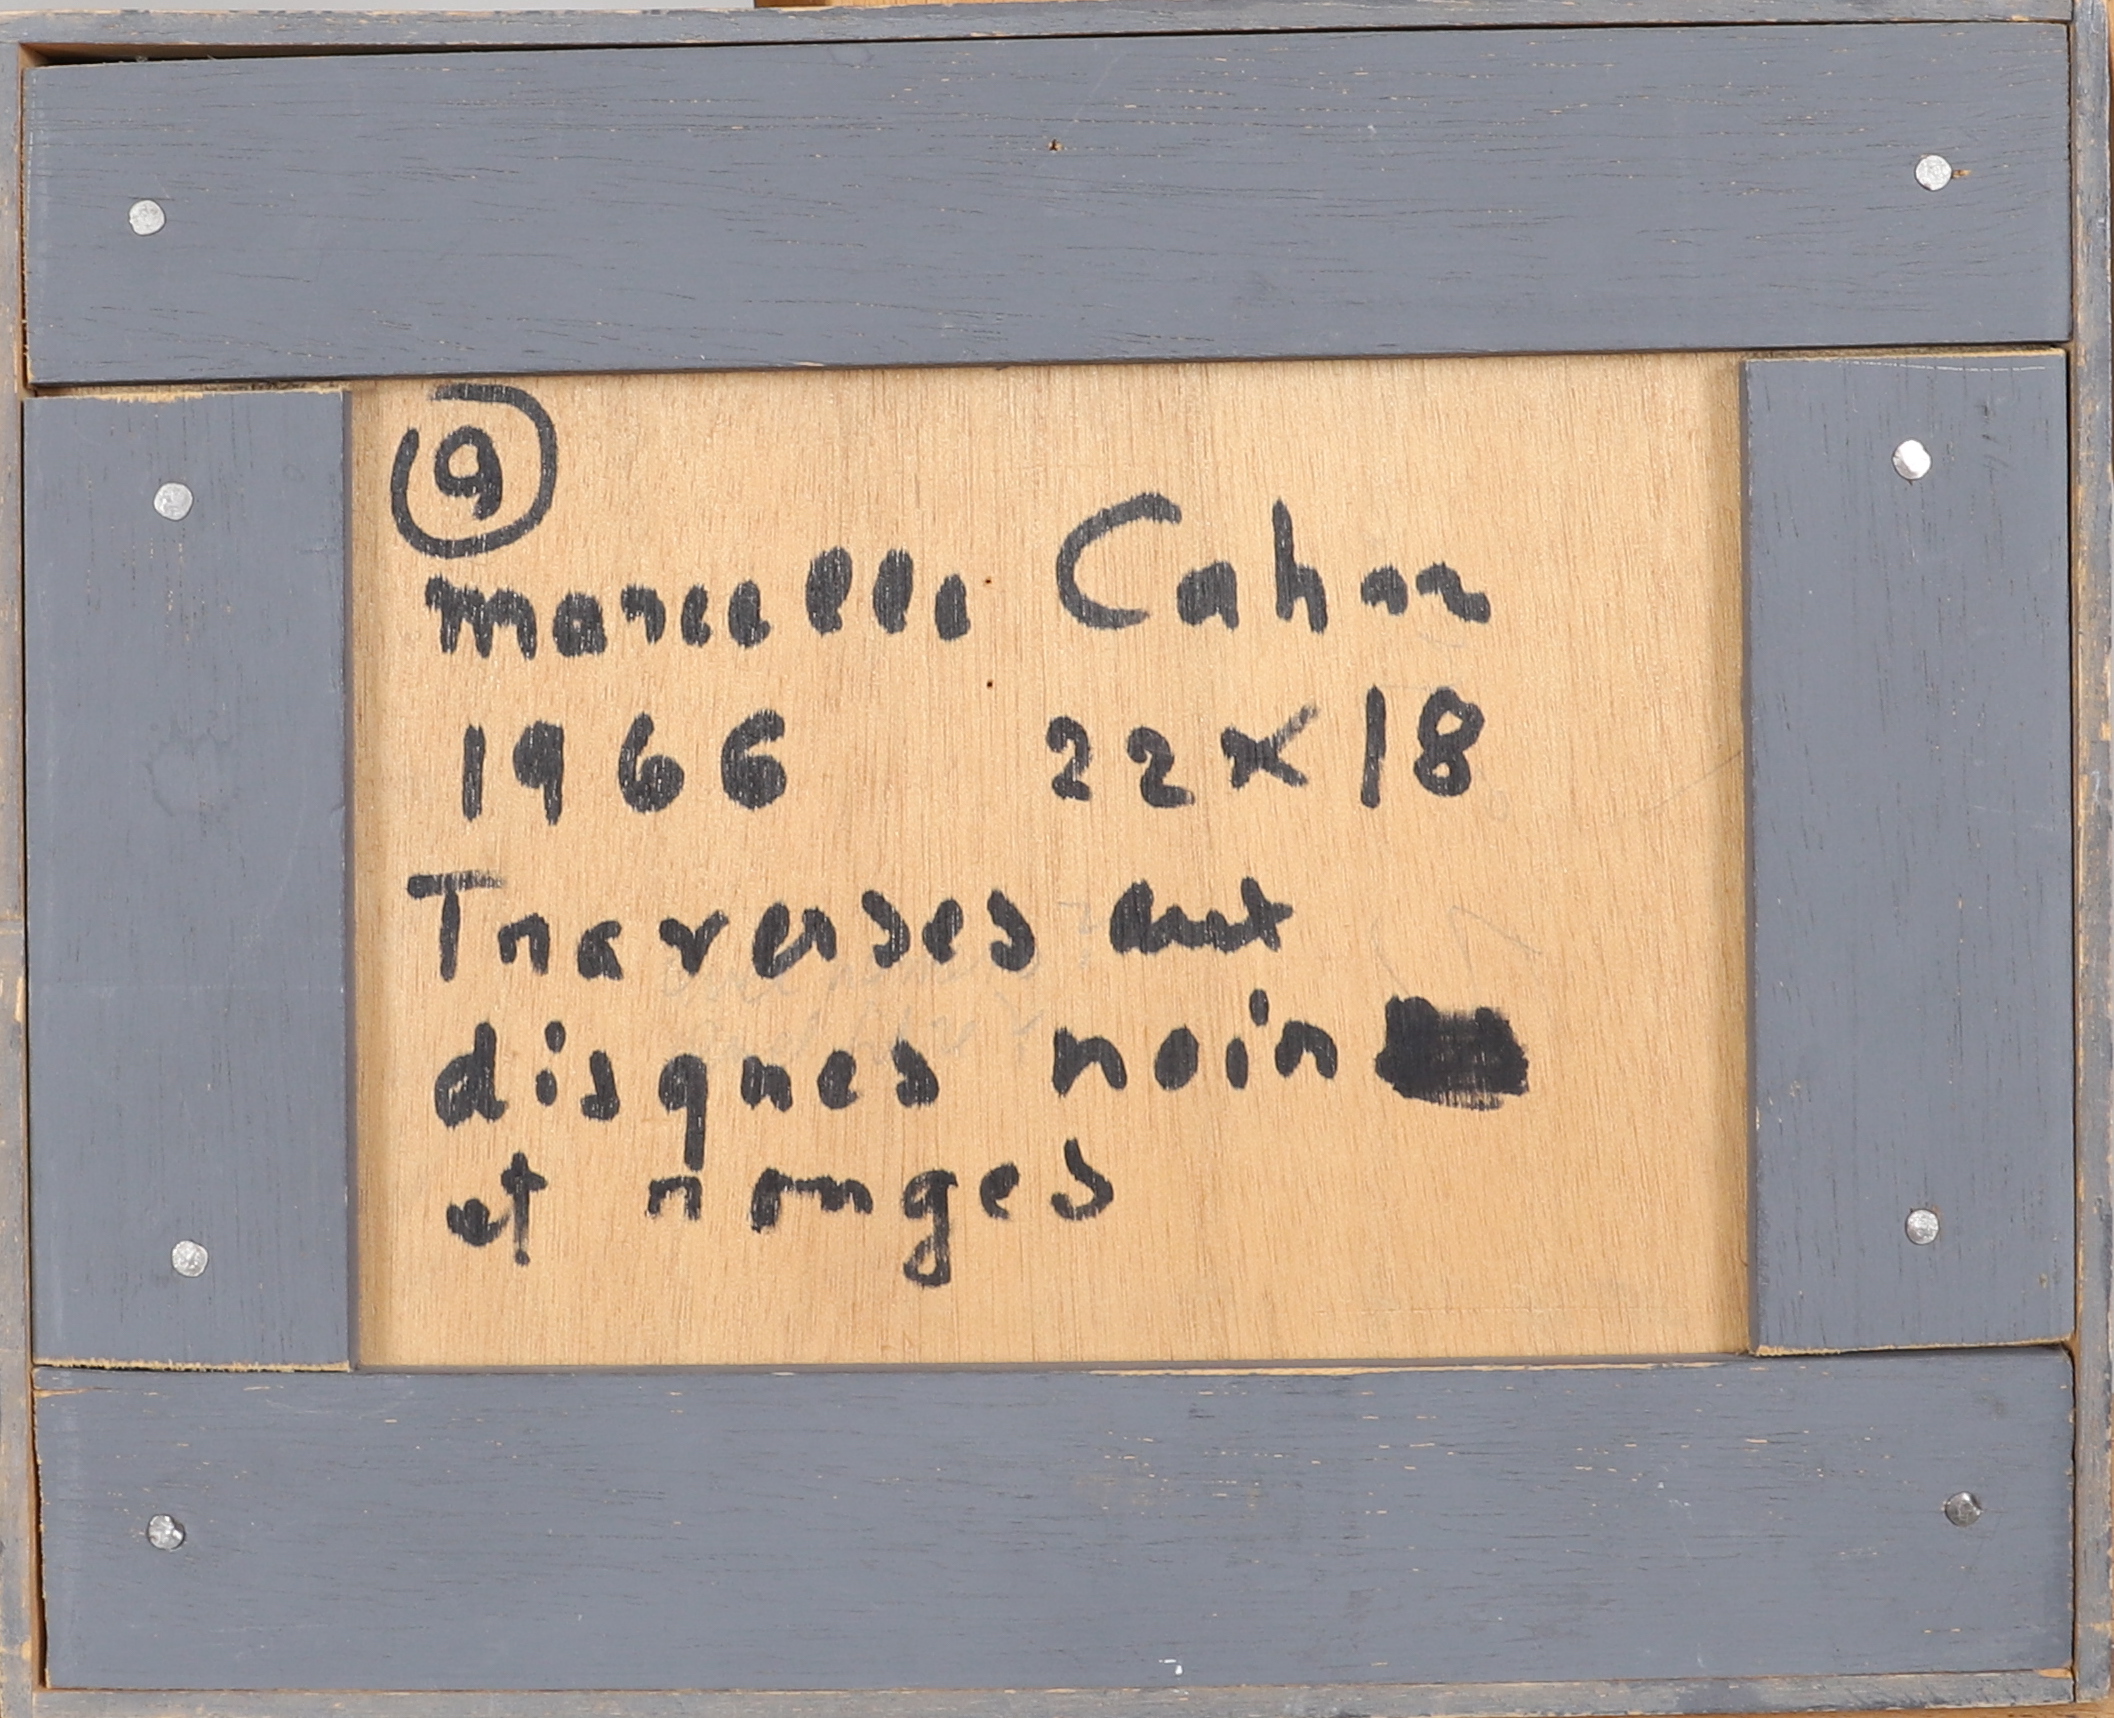 9
Marcelle Cahn
1966 22x18
Traverses aux
disques noir
et rouges